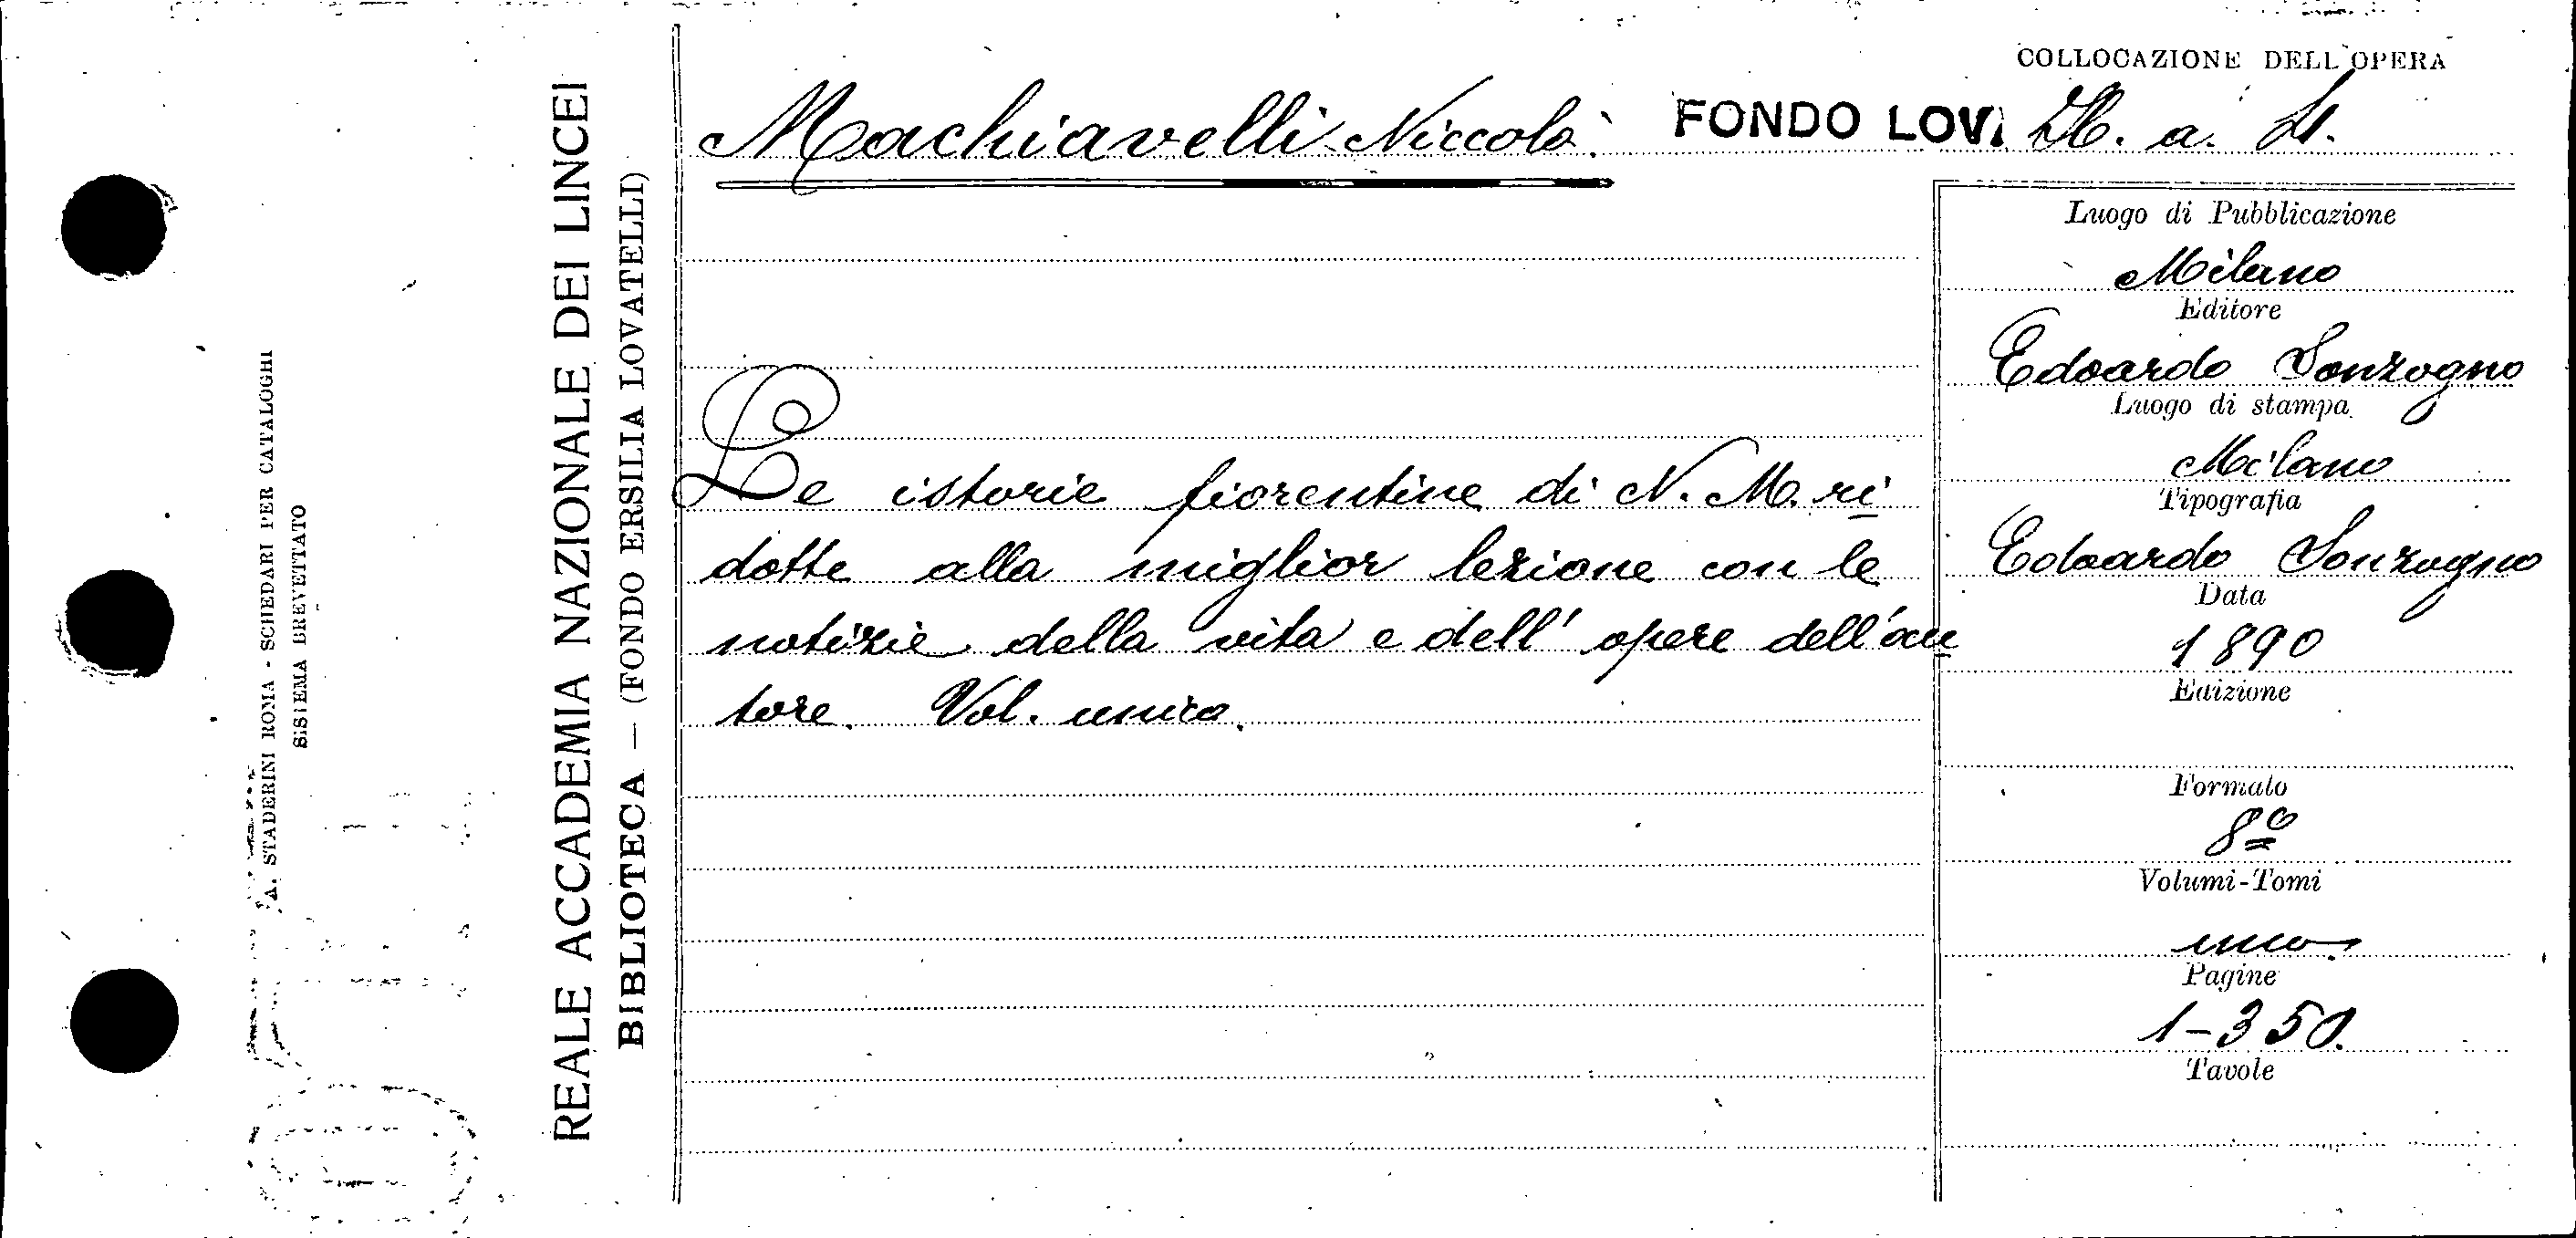 COLLOCAZIONE DELL'OPERA
Machiavelli Niccolò
FONDO LOV. a. 4.
Le istorie fiorentine di N. M. ri
dotte alla miglior lezione con le
notizie della vita e dell' opere dell'au
tore. Vol. unico.
Luogo di Pubblicazione
Milano
Editore
Edoardo Sonzogno
Luogo di stampa
Milano
Tipografia
Edoardo Sonzogno
Data
1890
Edizione
Formato
8º
Volumi-Tomi
unico
Pagine
1-350.
Tavole
REALE ACCADEMIA NAZIONALE DEI LINCEI
BIBLIOTECA — (FONDO ERSILIA LOVATELLI)
A. STADERINI ROMA - SCHEDARI PER CATALOGHI
SISTEMA BREVETTATO